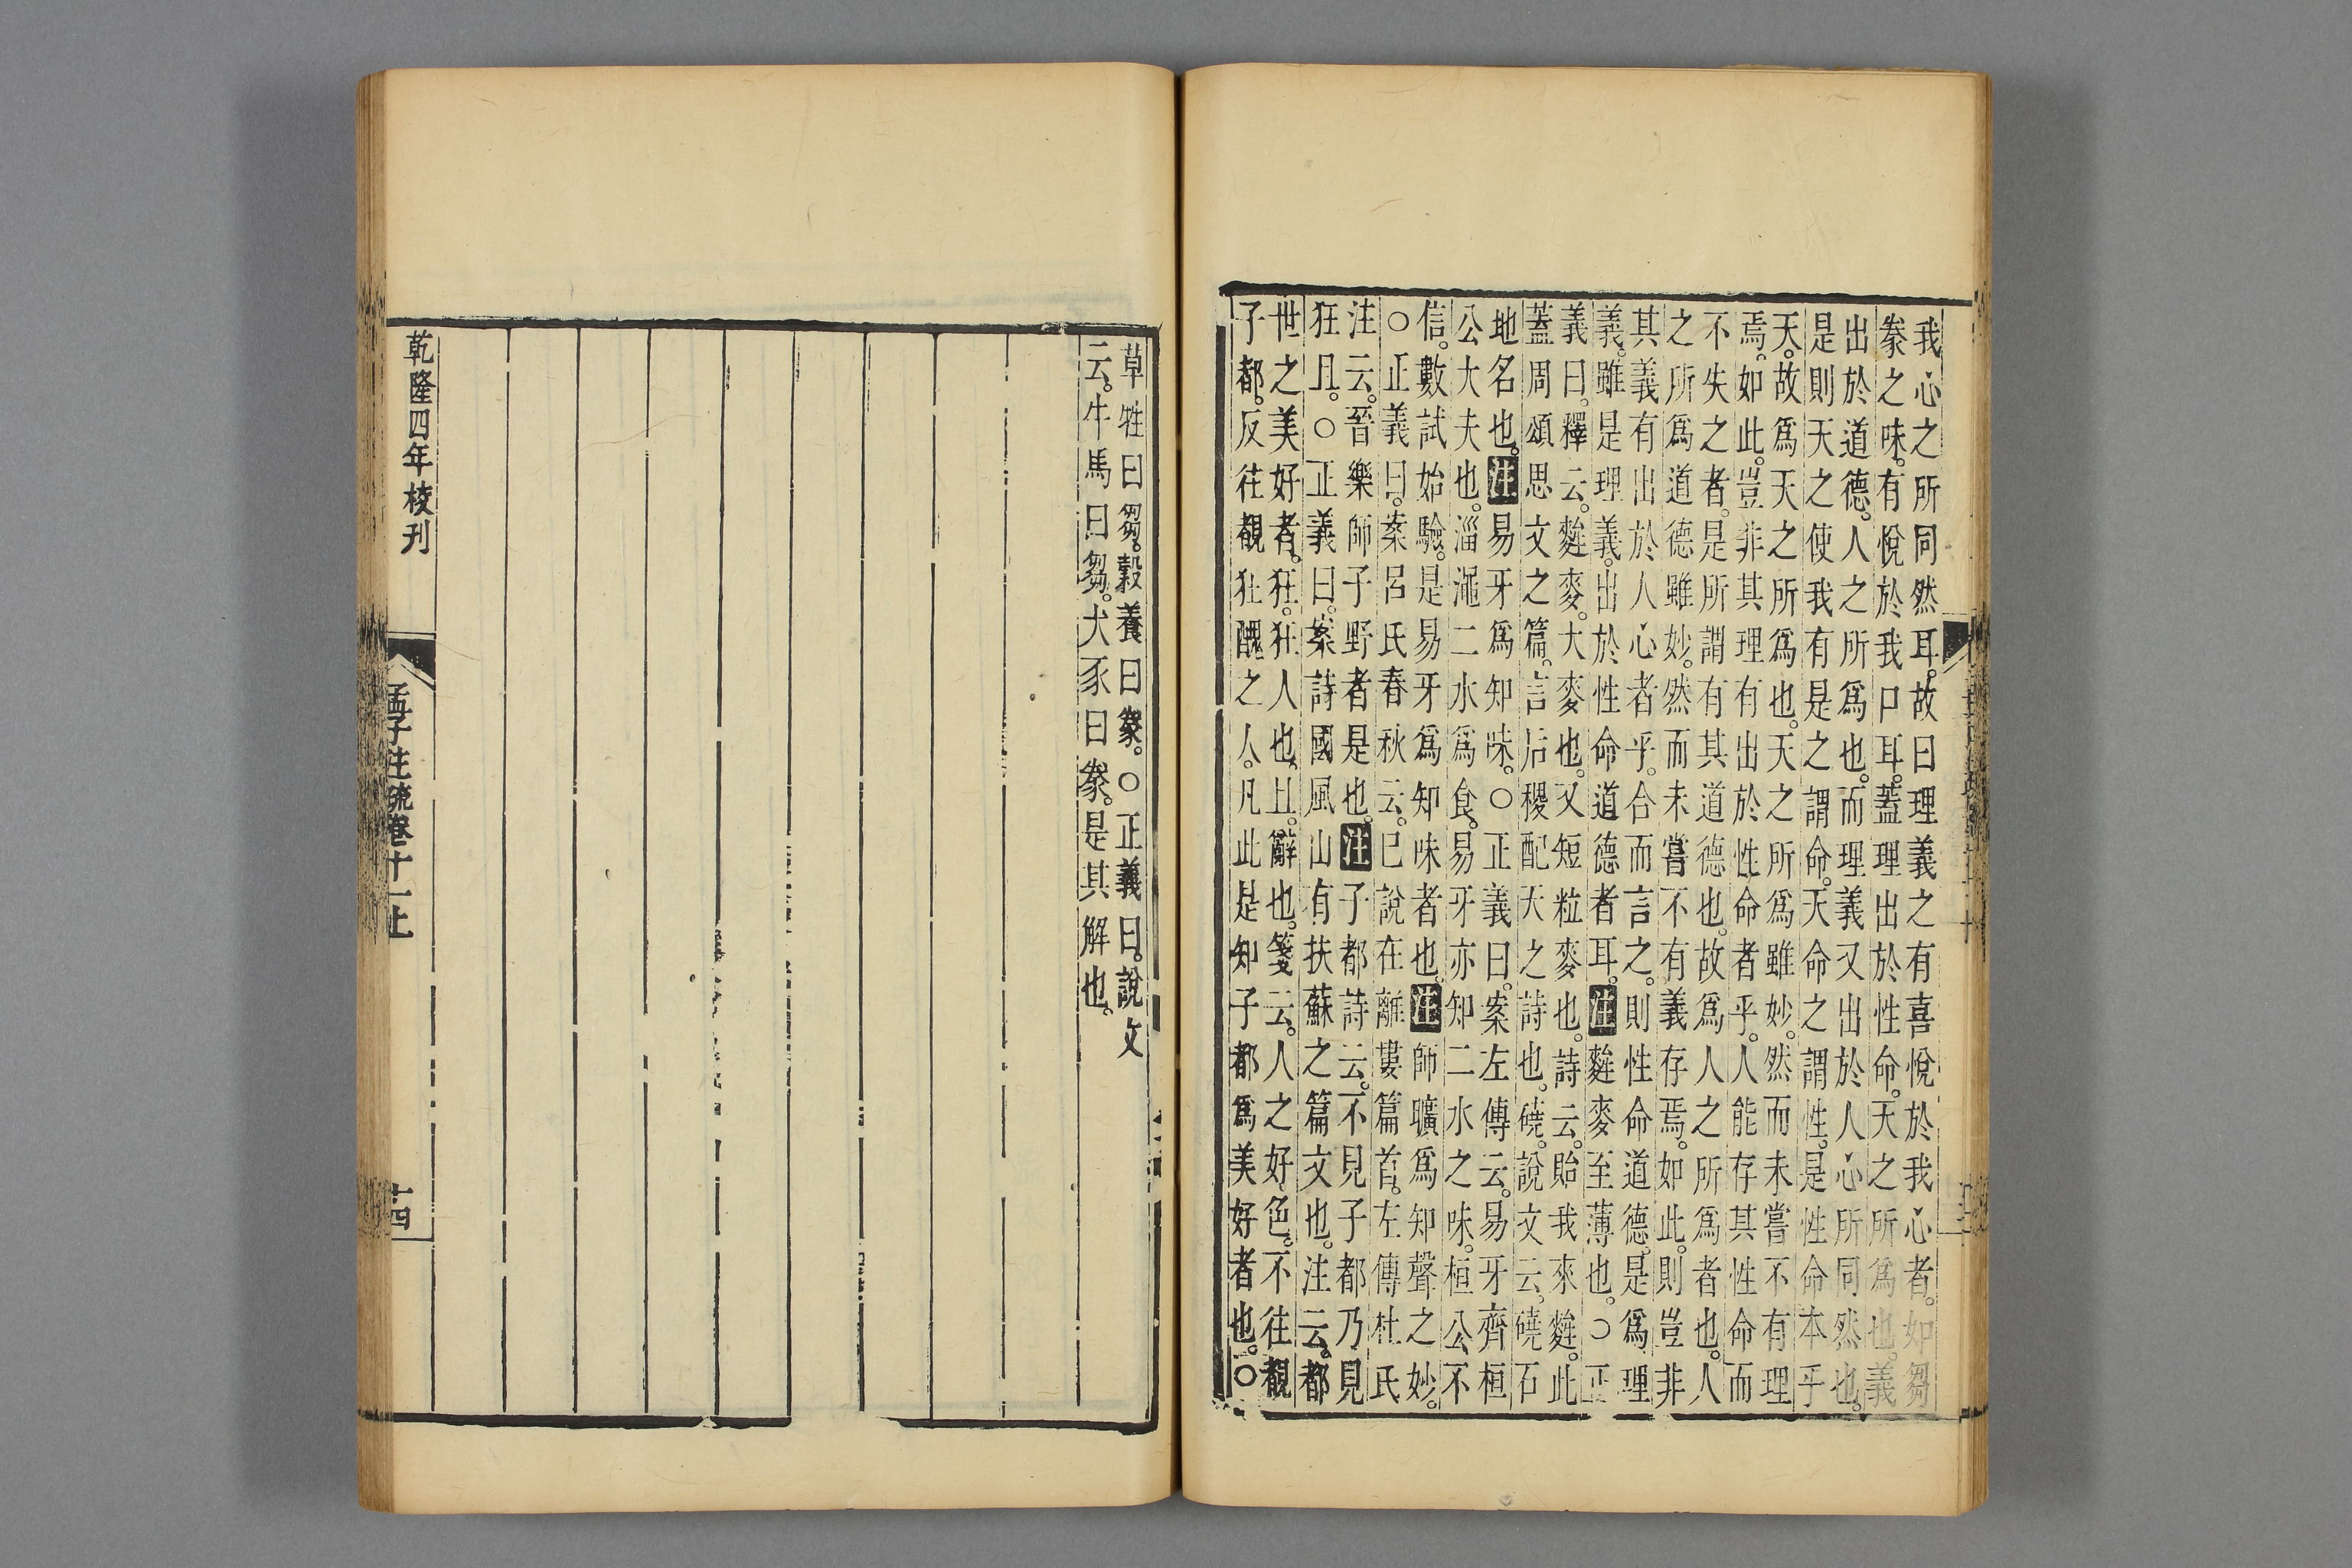 我心之所同然耳。故曰理義之有喜悅於我心者。如芻
豢之味。有悅於我口耳。蓋理出於性命。天之所爲也。義
出於道德。人之所爲也。而理義又出於人心所同然也。
是則天之使我有是之謂命。天命之謂性。是性命本乎
天。故爲天之所爲也。天之所爲雖妙。然而未嘗不有理
焉。如此。豈非其理有出於性命者乎。人能存其性命而
不失之者。是所謂有其道德也。故爲人之所爲者也。人
之所爲道德雖妙。然而未嘗不有義存焉。如此。則豈非
其義有出於人心者乎。合而言之。則性命道德。是爲理
義。雖是理義。出於性命道德者耳。注麰麥至薄也。○正
義曰。釋云。麰麥。大麥也。又短粒麥也。詩云。貽我來麰。此
蓋周頌思文之篇。言后稷配天之詩也。磽。說文云。磽石
地名也。注易牙爲知味。○正義曰。案左傳云。易牙齊桓
公大夫也。淄澠二水爲食。易牙亦知二水之味。桓公不
信。數試始驗。是易牙爲知味者也。注師曠爲知聲之妙。
○正義曰。案呂氏春秋云。已說在離婁篇首。左傳杜氏
注云。晉樂師子野者是也。注子都詩云。不見子都乃見
狂且。○正義曰。案詩國風山有扶蘇之篇文也。注云。都
世之美好者。狂。狂人也。且。辭也。箋云。人之好色。不往覩
子都。反往覩狂醜之人。凡此是知子都爲美好者也。○
草牲曰芻。穀養曰豢。○正義曰。說文
云。牛馬曰芻。犬豕曰豢。是其解也。
乾隆四年校刊
孟子注疏卷十一上
十四